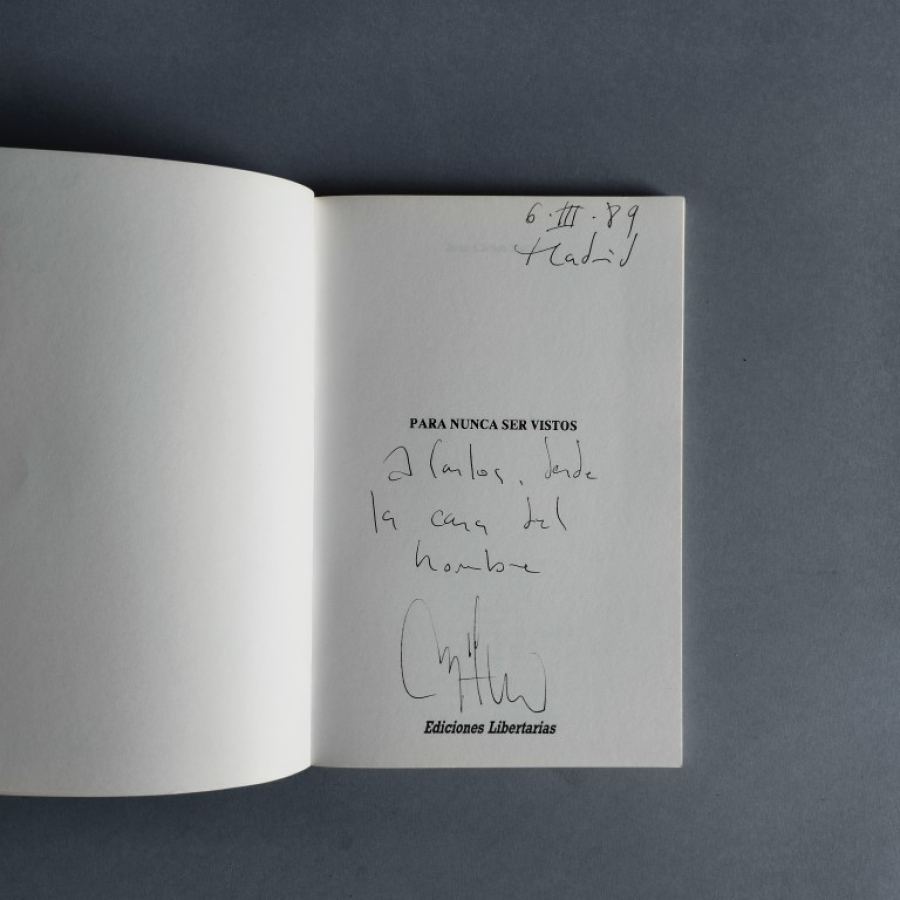 6·III·89
Madrid
PARA NUNCA SER VISTOS
A Carlos, desde
la casa del
hombre
Ediciones Libertarias